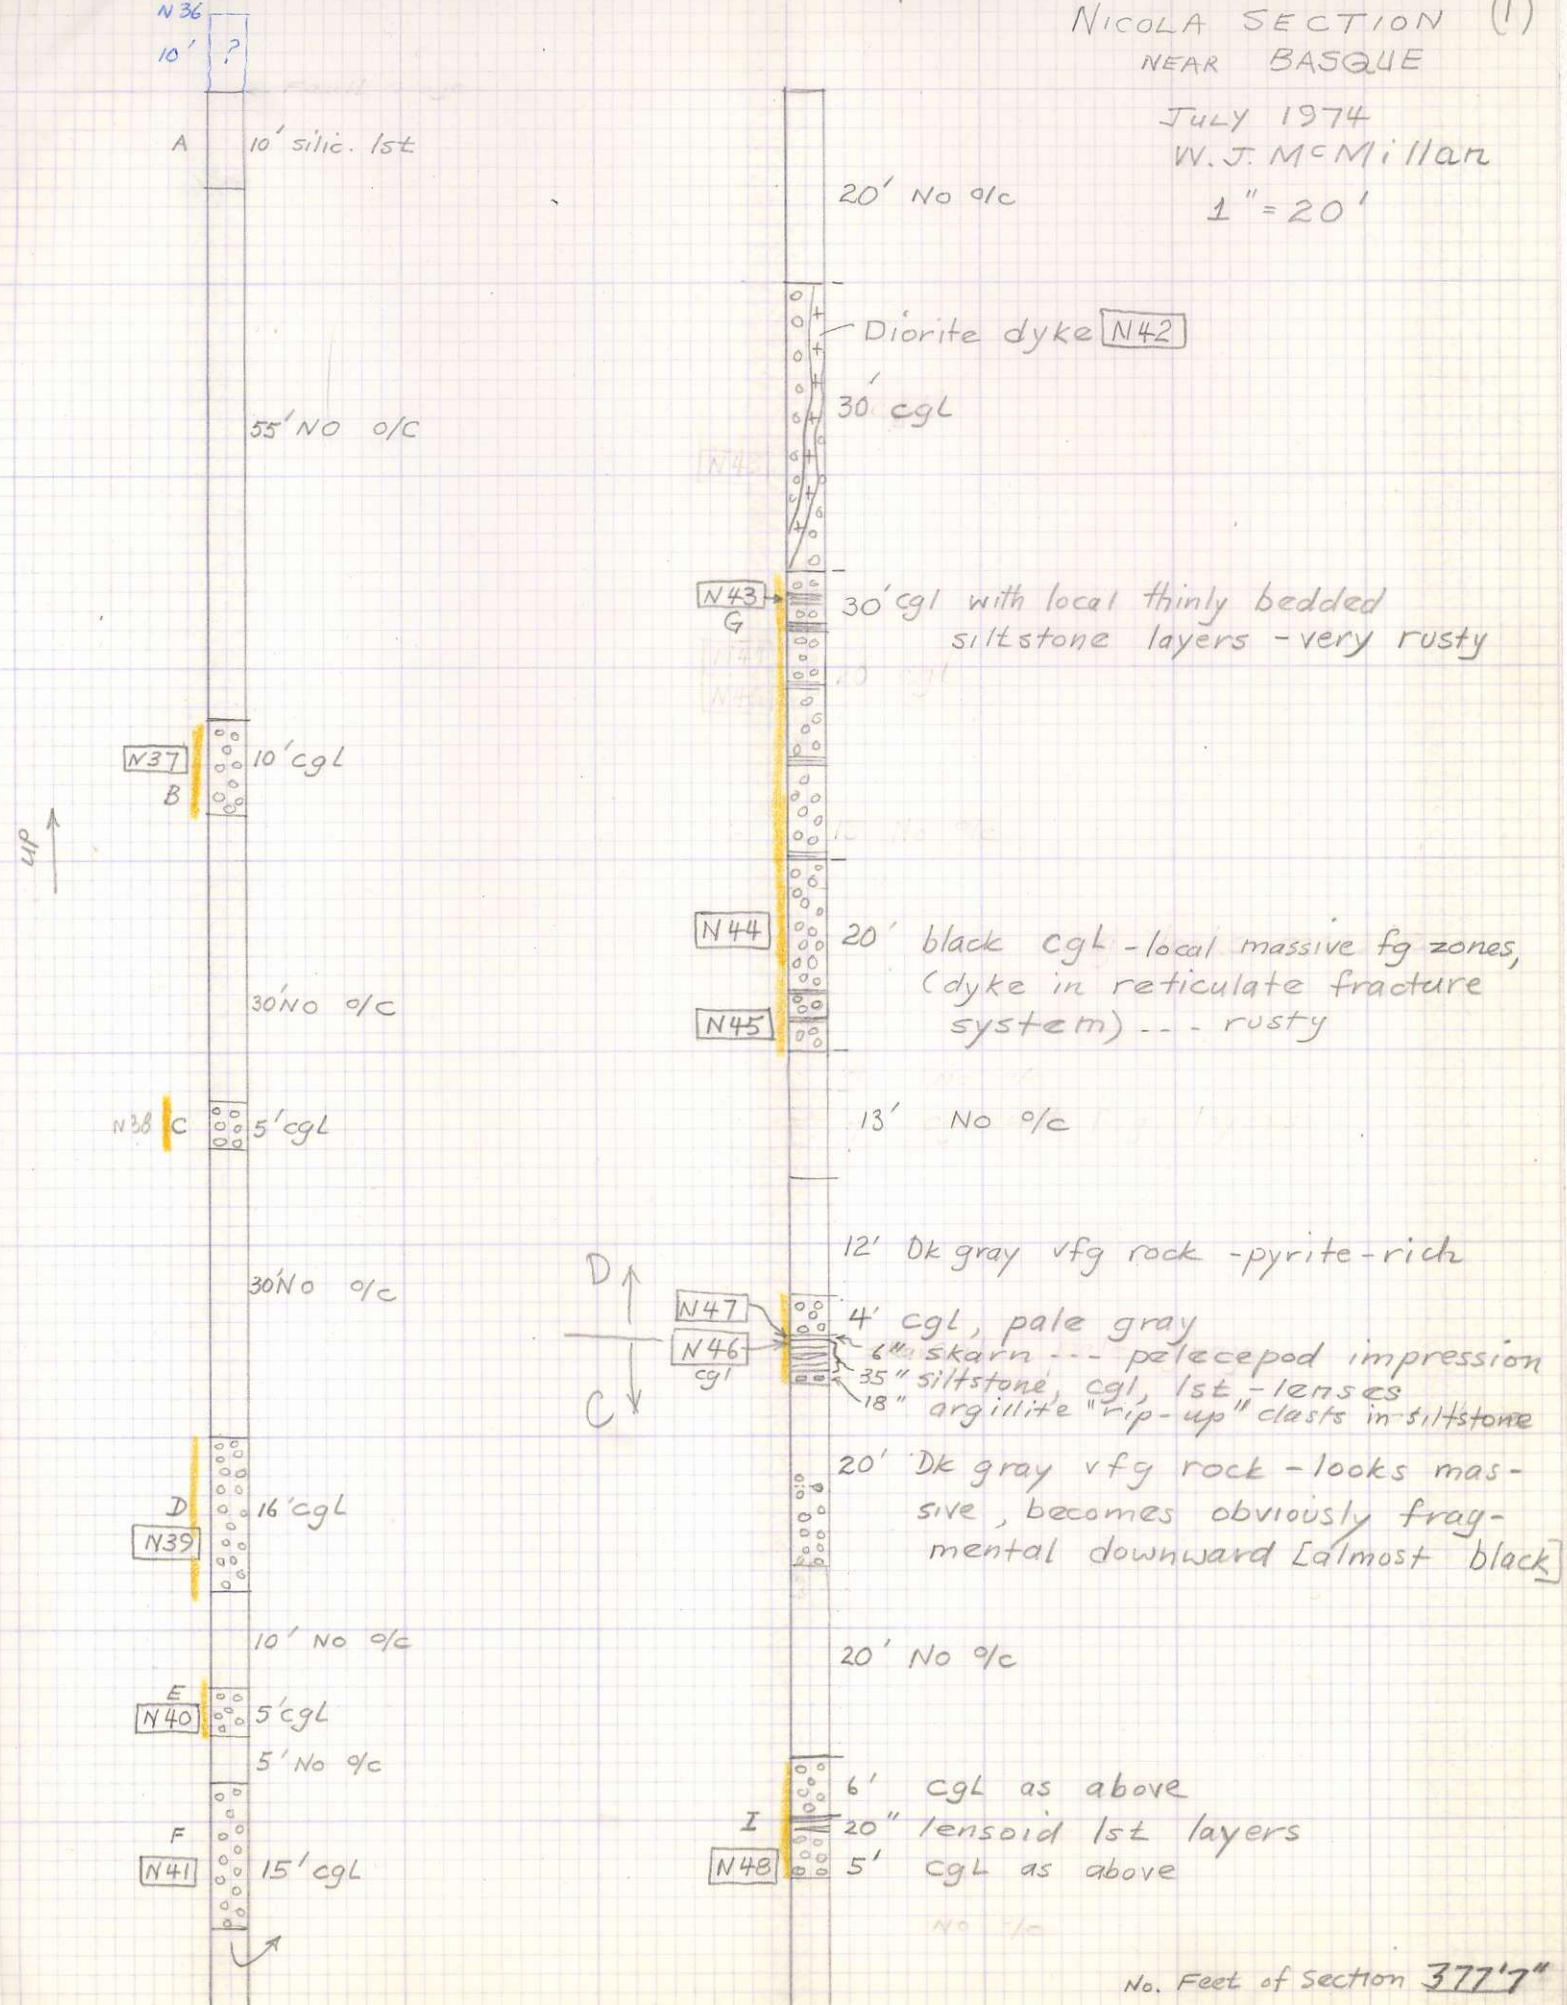 NICOLA SECTION (1)
NEAR BASQUE
JULY 1974
W.J. McMillan
1" = 20'
N36
10' ?
A 10' silic. lst
55' NO o/c
N37 10' cgl
B
UP
30' NO o/c
N38 C 5' cgl
30' NO o/c
D 16' cgl
N39
10' NO o/c
E
N40 5' cgl
5' No o/c
F
N41 15' cgl
20' No o/c
Diorite dyke N42
30' cgl
N43 30' cgl with local thinly bedded
G siltstone layers - very rusty
N44 20' black cgl - local massive fg zones,
(dyke in reticulate fracture
N45 system) --- rusty
13' No o/c
12' Dk gray vfg rock - pyrite-rich
D
N47 4' cgl, pale gray
N46 6" skarn --- pelecepod impression
cgl 35" siltstone, cgl, lst, - lenses
C 18" argillite "rip-up" clasts in siltstone
20' Dk gray vfg rock - looks mas-
sive, becomes obviously frag-
mental downward [almost black]
20' No o/c
6' cgl as above
I 20" lensoid lst layers
N48 5' cgl as above
No. Feet of Section 377'7"